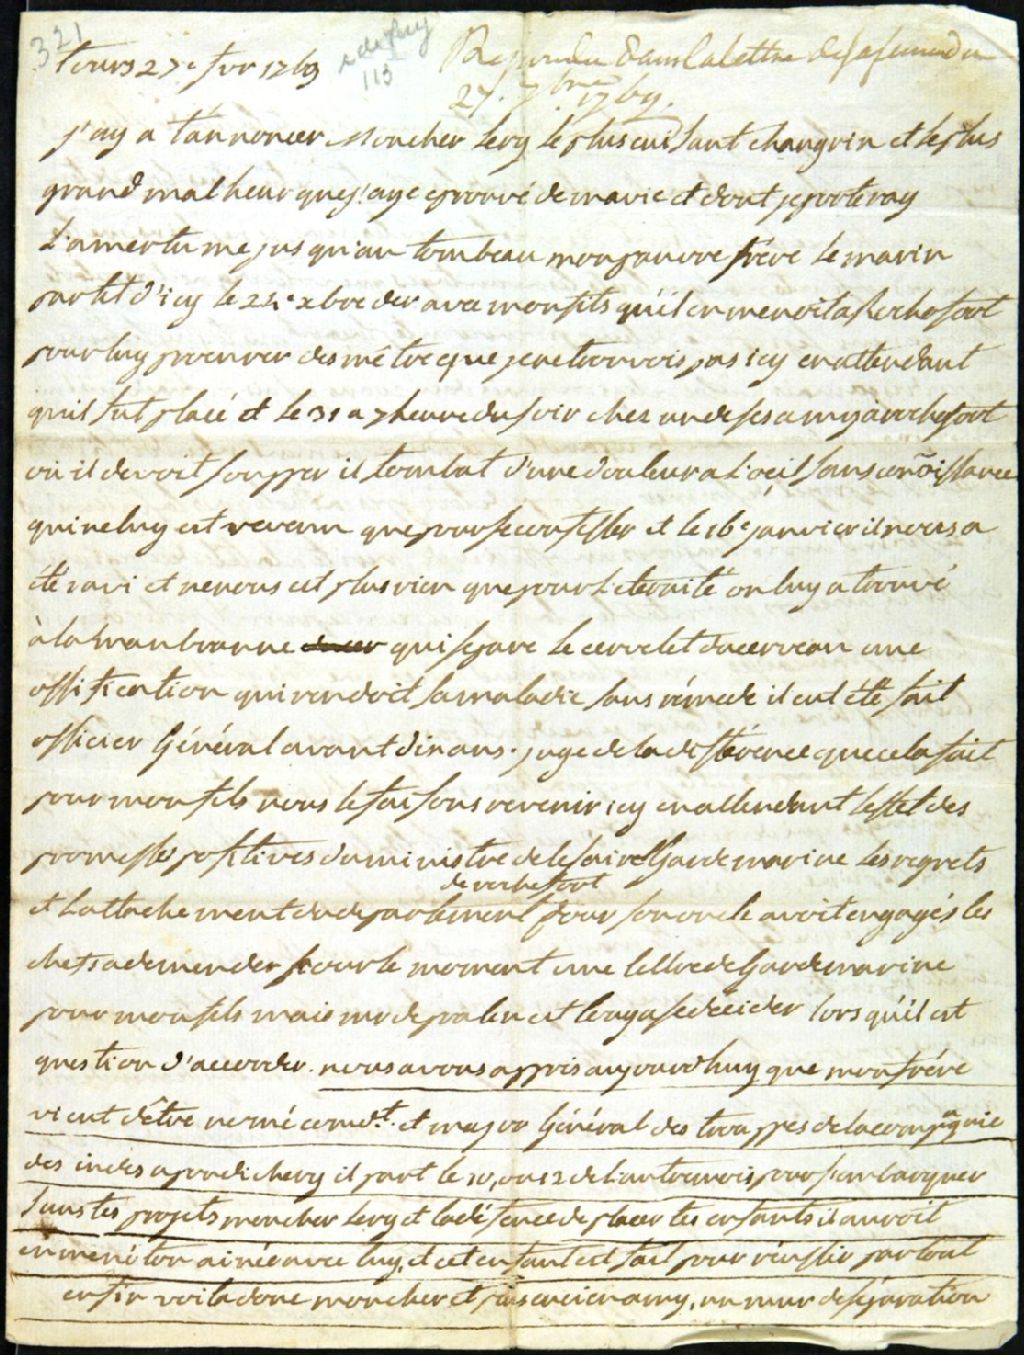 321
tours 27e fvr 1769
113
Repondu dans la lettre de sa femme du
27. 7bre 1769.
j'ay a t'annoncer Moncher Lery le plus cuisant changrin et le plus
grand malheur que j'aye eprouvé de ma vie et dont je porteray
L'amertume jusqu'au tombeau mon pauvre frére Le marin
partit d'icy le 22e xbre der avec mon fils qu'il enmenoit a Rochefort
pour luy procurer des mêtre que je ne trouvois pas icy en attendant
quil fut placé et le 31 a 7 heure du soir chez un de ses amys à rochefort
où il devoit soupper il tombat d'une douleur a L'oeil sans conõissance
qui ne luy est revenu que pour se confesser et le 16e janvier il nous a
été ravi et ne nous est plus rien que pour L'eternité on luy a trouvé
à la manbranne qui separe le cervelet du cerveau une
ossification qui rendoit sa maladie sans réméde il eut été fait
officier Général avant dix ans. juge de la différence que cela fait
pour mon fils nous le faisons revenir icy en attendant leffet des
promesses positives du ministre de le faire Garde marine Les regrets
de rochefort
et L'attachement du departement pour son oncle avoit engagés les
chefs a demender pour le moment une lettre de Garde marine
pour mon fils mais mr de pralin est long a se décider lors qu'il est
question d'accorder. nous avons appris aujourd'huy que mon frére
vient d'être nomé comdt. et major Général des trouppes de la compagnie
des indes a pondichery il part le 10, ou 12 de L'autre mois pour s'embarquer
sans tes projets moncher Lery et la défence de placer tes enfants il auroit
enmené ton ainé avec luy, et cet enfant est fait pour réussir partout
enfin voila donc moncher et plus ancien amy, un mur de séparation